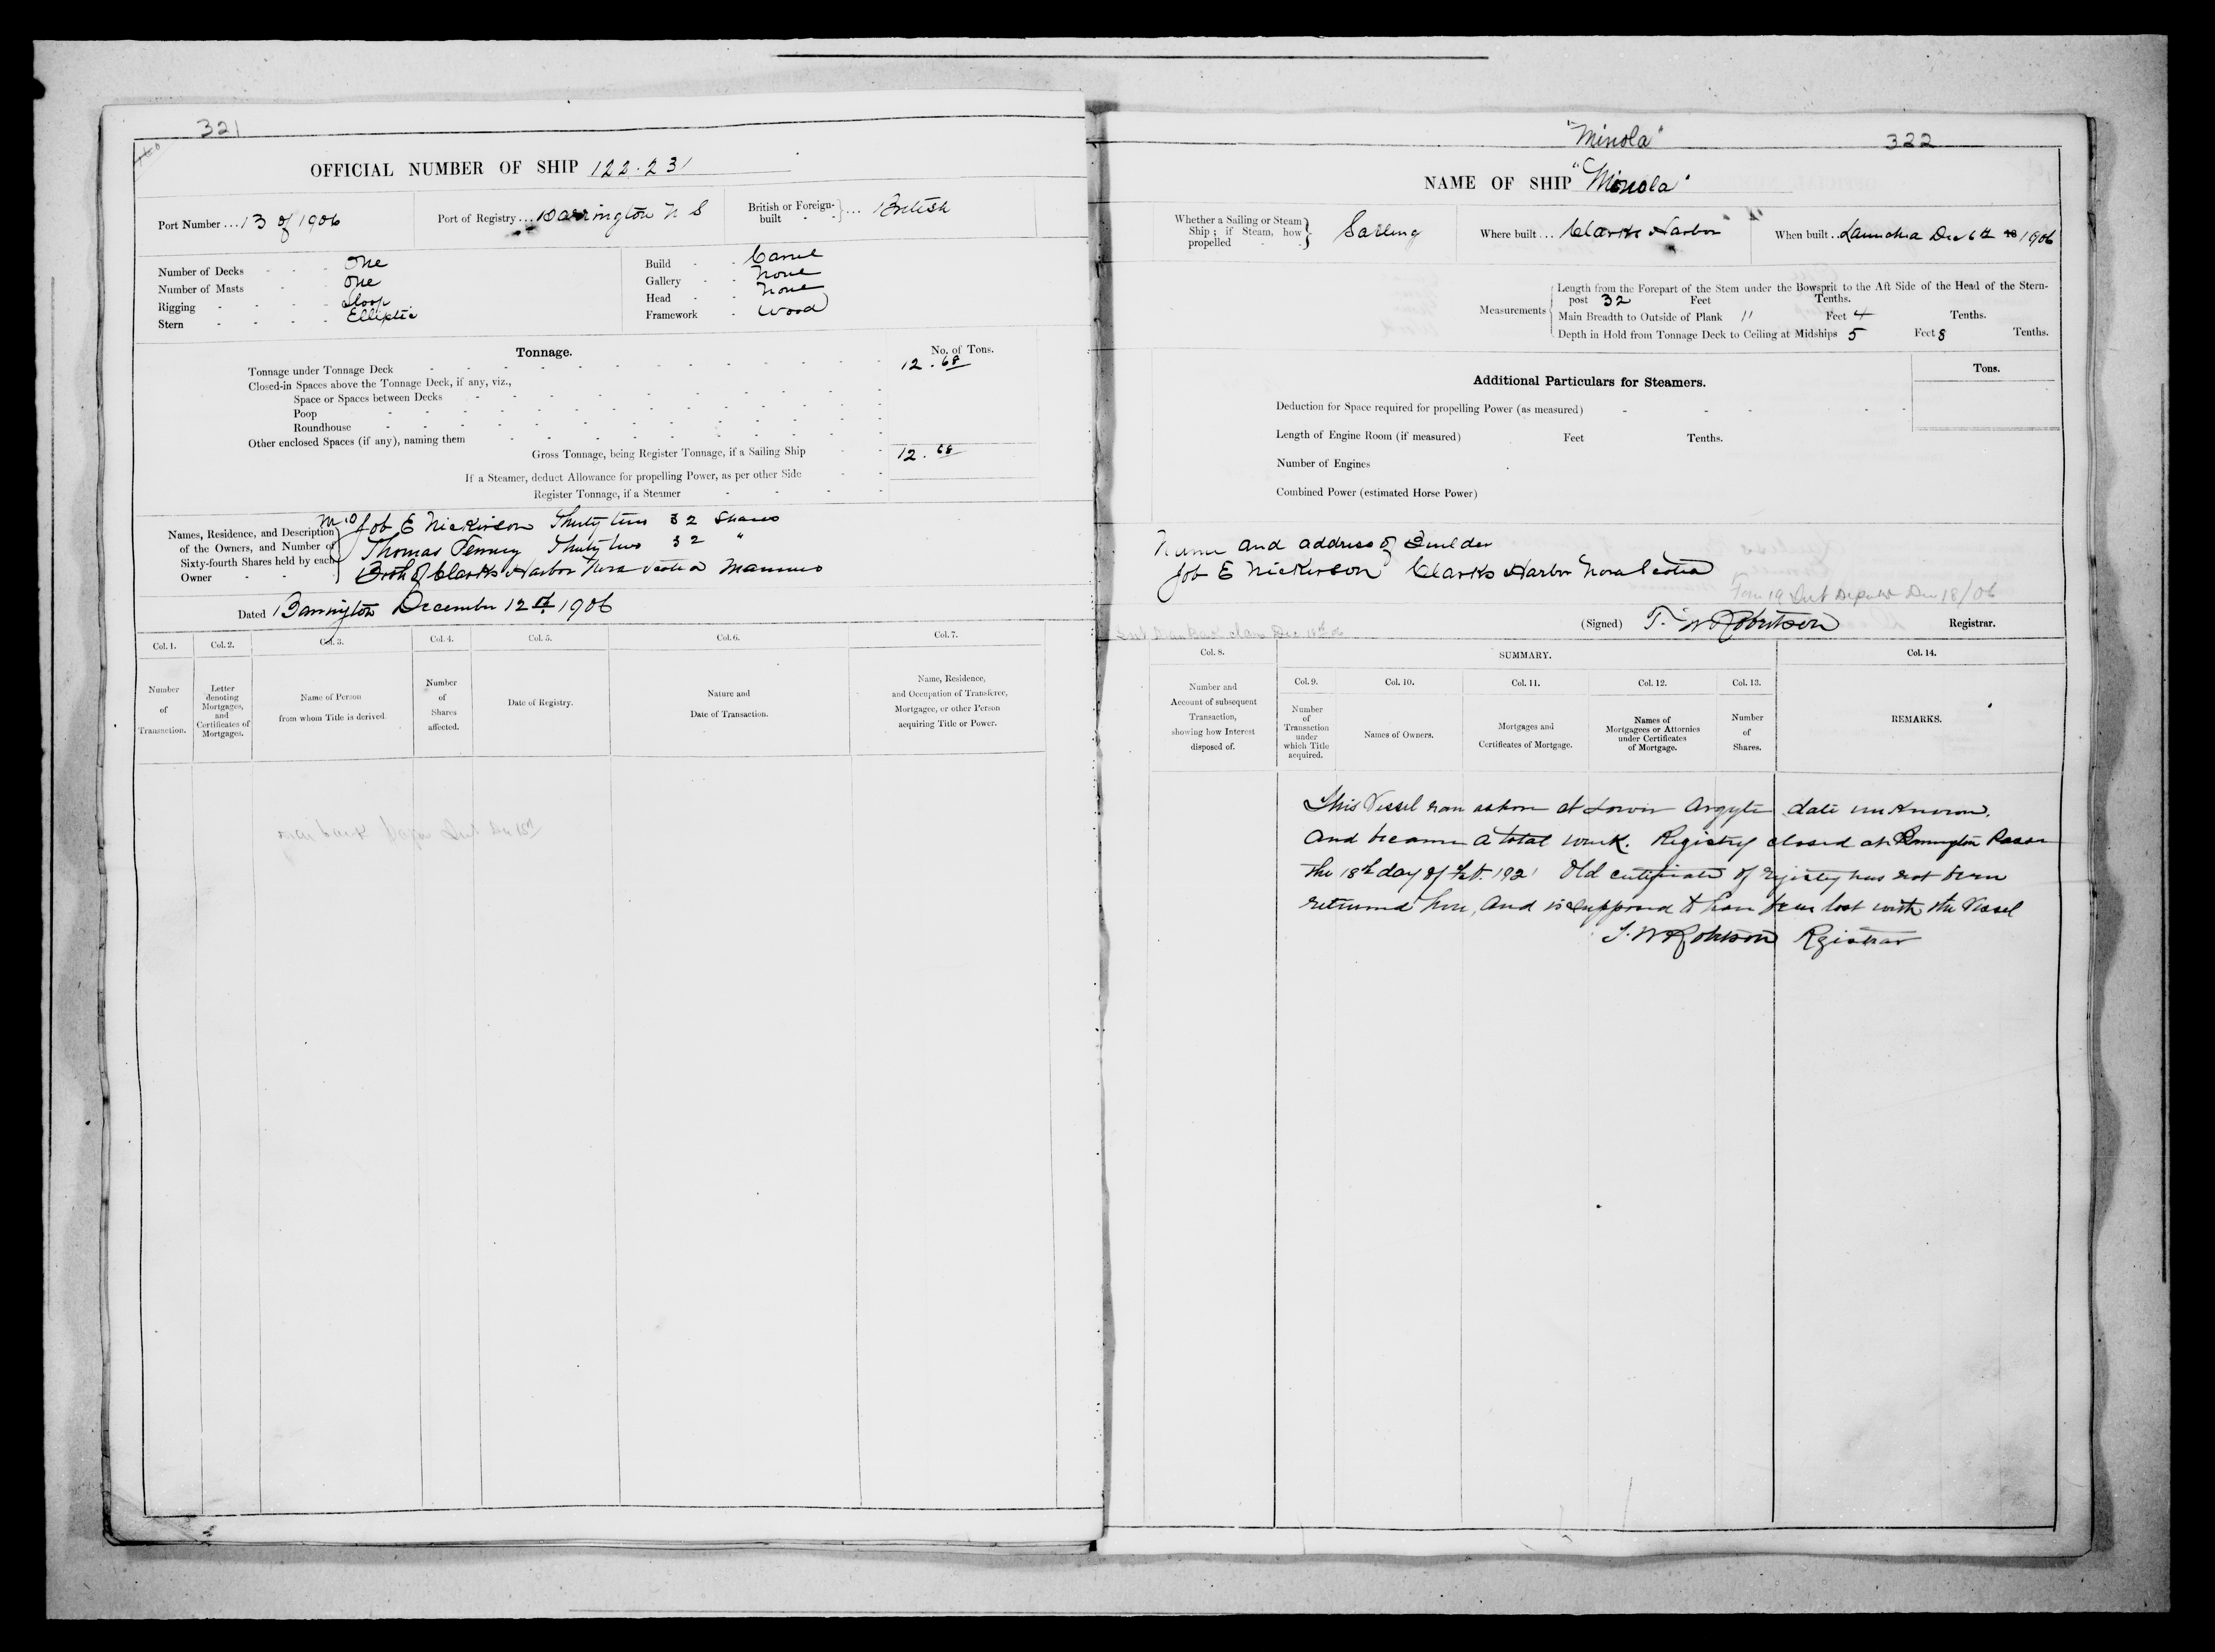 321
OFFICIAL NUMBER OF SHIP 122.231
Port Number ... 13 of 1906
Port of Registry ... Barrington N S
British or Foreign-built } ... British
Number of Decks - - - One
Number of Masts - One
Rigging - - - - Sloop
Stern - - - - Elliptic
Build - - Carvel
Gallery - - None
Head - - None
Framework - Wood
Tonnage.
No. of Tons.
Tonnage under Tonnage Deck 12.68
Closed-in Spaces above the Tonnage Deck, if any, viz.,
Space or Spaces between Decks
Poop
Roundhouse
Other enclosed Spaces (if any), naming them
Gross Tonnage, being Register Tonnage, if a Sailing Ship 12.68
If a Steamer, deduct Allowance for propelling Power, as per other Side
Register Tonnage, if a Steamer
Names, Residence, and Description of the Owners, and Number of Sixty-fourth Shares held by each Owner - -
M.O Job E Nickerson Thirty two 32 Shares
Thomas Penney Thirty two 32 "
Both of Clarks Harbor Nova Scotia Mariners
Dated Barrington December 12th 1906
Col. 1.
Number of Transaction.
Col. 2.
Letter denoting Mortgages, and Certificates of Mortgages.
Col. 3.
Name of Person from whom Title is derived.
Col. 4.
Number of Shares affected.
Col. 5.
Date of Registry.
Col. 6.
Nature and Date of Transaction.
Col. 7.
Name, Residence, and Occupation of Transferee, Mortgagee, or other Person acquiring Title or Power.
"Minola"
322
NAME OF SHIP "Minola"
Whether a Sailing or Steam Ship; if Steam, how propelled - - } Sailing
Where built ... Clarks Harbor
When built .. Launched Dec 6th 18 1906
Measurements
Length from the Forepart of the Stem under the Bowsprit to the Aft Side of the Head of the Stern-
post 32 Feet Tenths.
Main Breadth to Outside of Plank 11 Feet 4 Tenths.
Depth in Hold from Tonnage Deck to Ceiling at Midships 5 Feet 8 Tenths.
Additional Particulars for Steamers.
Tons.
Deduction for Space required for propelling Power (as measured)
Length of Engine Room (if measured) Feet Tenths.
Number of Engines
Combined Power (estimated Horse Power)
Name and address of Builder
Job E Nickerson Clarks Harbor Nova Scotia
Form 19 Sent Dec 18/06
(Signed) T. W Robertson Registrar.
Col. 8.
Number and Account of subsequent Transaction, showing how Interest disposed of.
SUMMARY.
Col. 9.
Number of Transaction under which Title acquired.
Col. 10.
Names of Owners.
Col. 11.
Mortgages and Certificates of Mortgage.
Col. 12.
Names of Mortgagees or Attornies under Certificates of Mortgage.
Col. 13.
Number of Shares.
Col. 14.
REMARKS.
This Vessel ran ashore at Lower Argyle date unknown.
And became a total wreck. Registry closed at Barrington Passa
the 18th day of Feb. 1921 Old certificate of registry has not been
returned here, and is supposed to have been lost with the Vessel
T. W Robertson Registrar